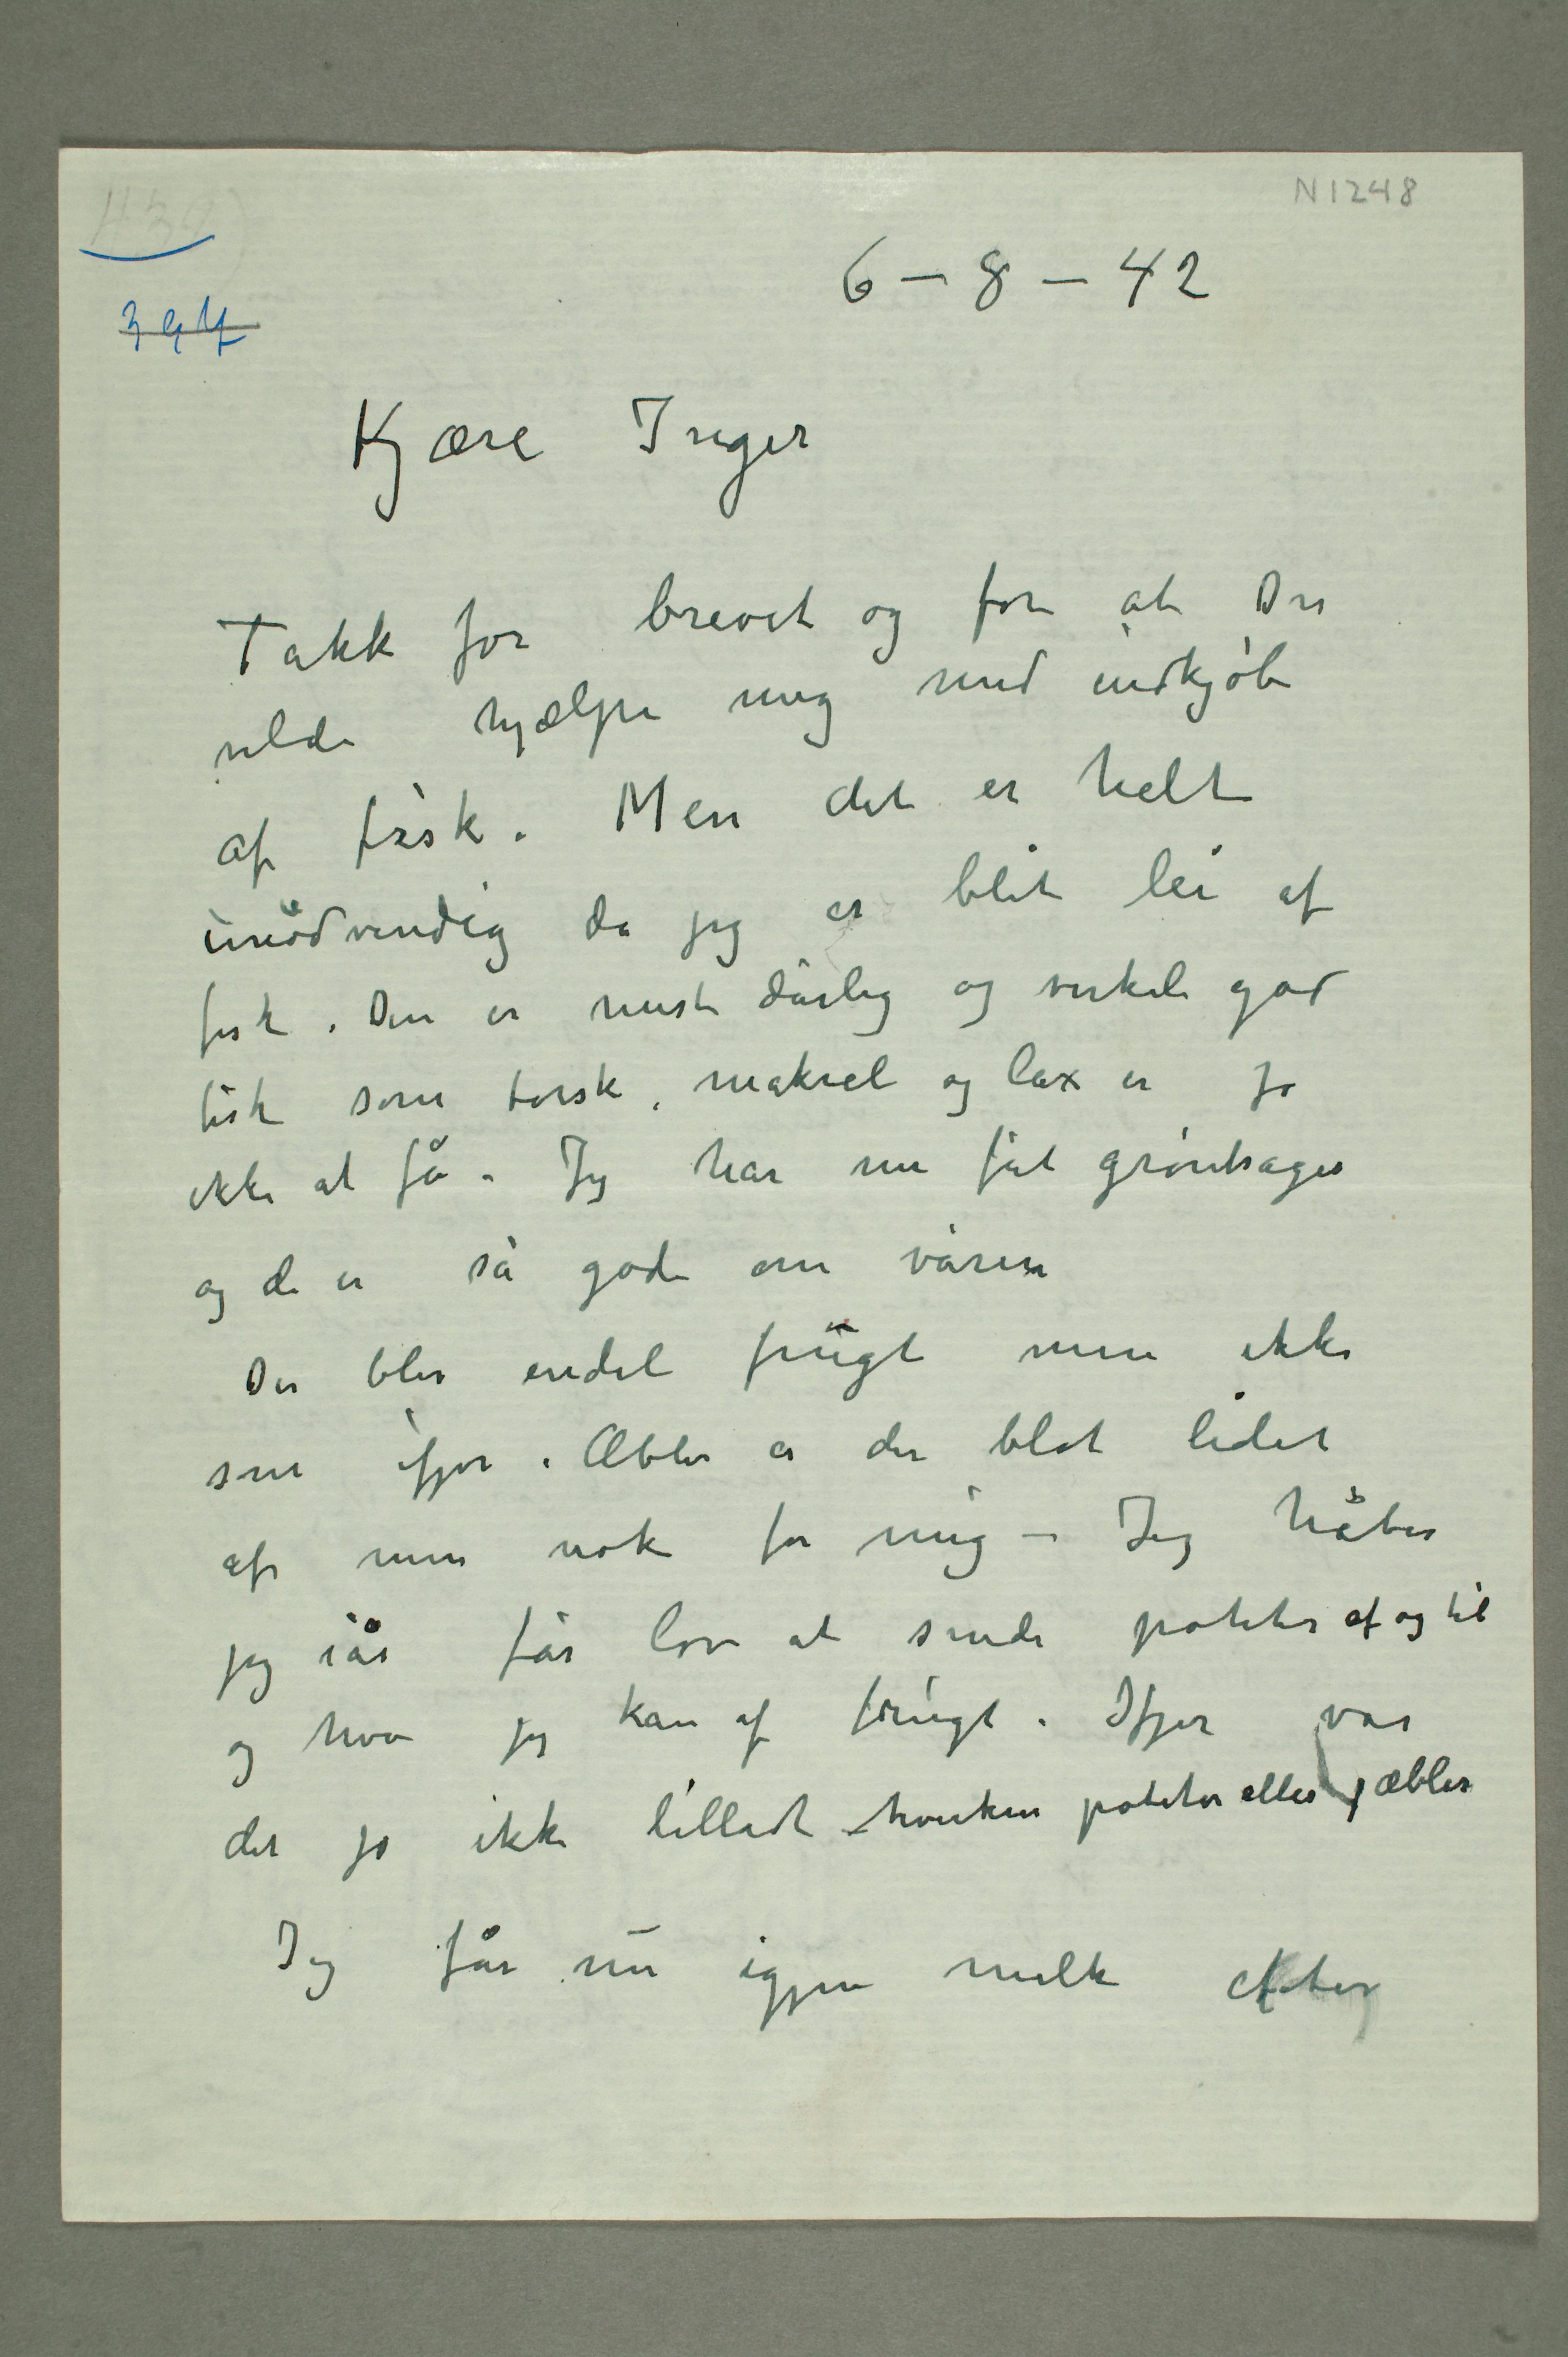 N1248
6 – 8 – 42
Kjære Inger
Takk for brevet og for at Du
vilde hjælpe mig med indkjøb
af fisk. Men det er helt
unødvendig da jeg er blit lei af
fisk. Den er mest dårlig og virkeli god
fisk som torsk, makrel og lax er jo
ikke at få – Jeg har nu fåt grøntsager
og de er så gode om våren
Der blir endel frugt men ikke
som ifjor. Æbler er der blot lidet
af men nok for mig – Jeg håber
jeg iår får lov at sende poteter af og til
og hva jeg kan af frugt. Ifjor var
det jo ikke tilladt – hverken poteter eller æbler
Jeg får nu igjen melk efter